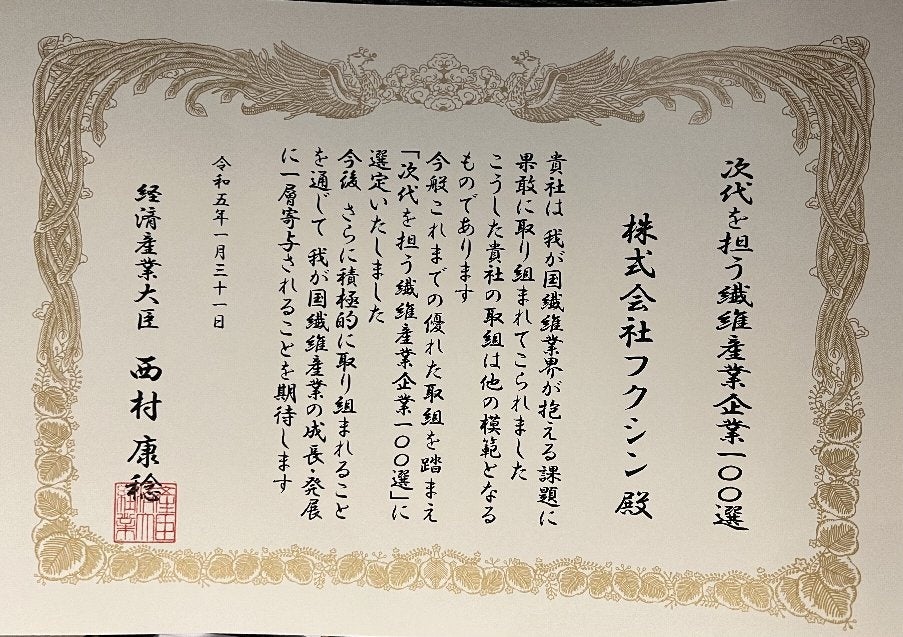 次代を担う繊維産業企業一〇〇選
株式会社フクシン殿
貴社は 我が国繊維業界が抱える課題に
果敢に取り組まれてこられました
こうした貴社の取組は他の模範となる
ものであります
今般これまでの優れた取組を踏まえ
「次代を担う繊維産業企業一〇〇選」に
選定いたしました
今後 さらに積極的に取り組まれること
を通じて 我が国繊維産業の成長・発展
に一層寄与されることを期待します
令和五年一月三十一日
経済産業大臣 西村康稔